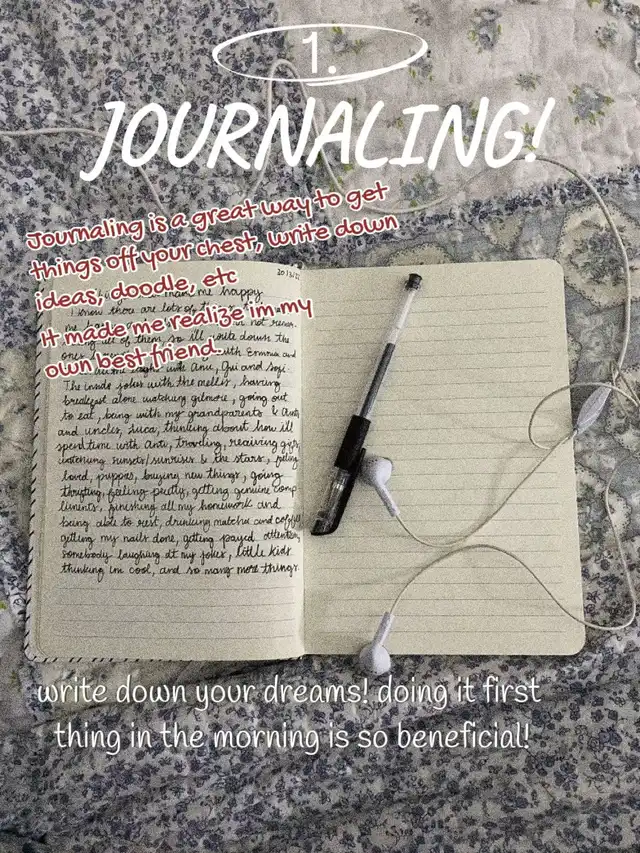 1.
JOURNALING!
Journaling is a great way to get
things off your chest, write down
ideas, doodle, etc
It made me realize im my
own best friend.
make me happy
I know there are lots of
all of them, so ill write down the
with Emma and
with Anu, Gui and Sofi.
The inside jokes with the melles, having
breakfast alone watching gilmore, going out
to eat, being with my grandparents & Aunts
and uncles, Luca, thinking about how ill
spend time with Antu, traveling, receiving gifts,
watching sunsets/sunrises & the stars, feeling
loved, puppies, buying new things, going
thrifting, feeling pretty, getting genuine comp
liments, finishing all my homework and
being able to rest, drinking matcha and coffee,
getting my nails done, getting payed attention,
somebody laughing at my jokes, little kids
thinking im cool, and so many more things.
write down your dreams! doing it first
thing in the morning is so beneficial!